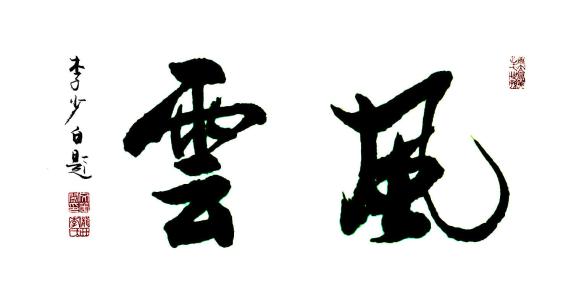 風雲
李少白題